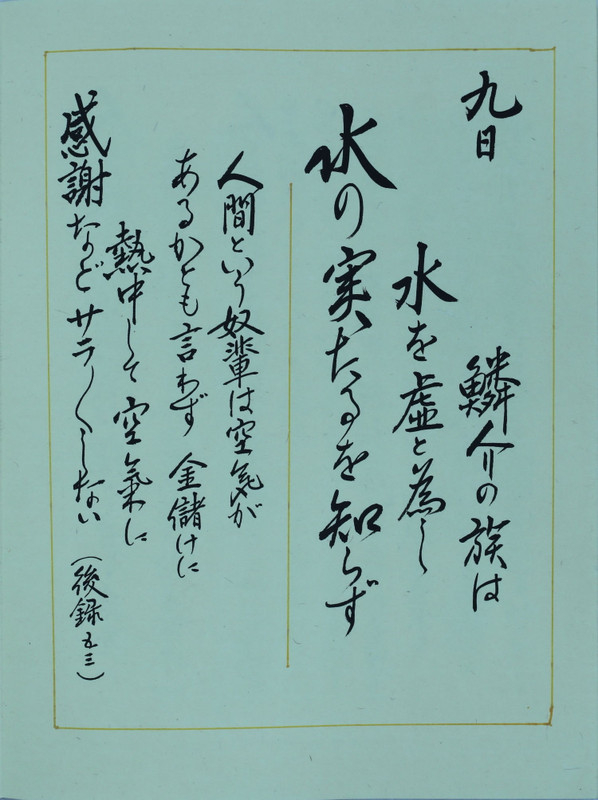 九日
鱗介の族は
水を虚と為し
水の実たるを知らず
人間という奴輩は空気が
あるかとも言わず 金儲けに
熱中して 空氣に
感謝など サラ〳〵しない
(後録五三)